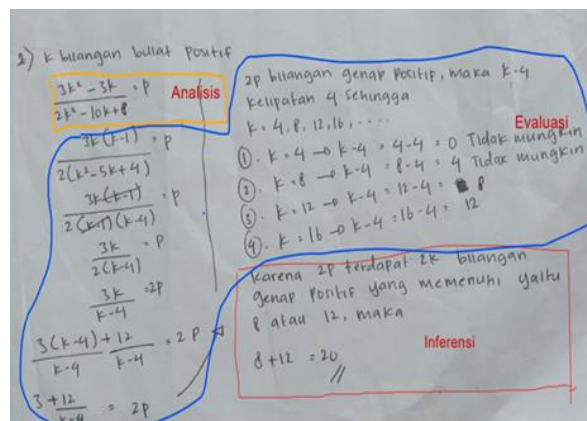 2) k bilangan bulat positif
3k² - 3k / 2k² - 10k + 8 = p
Analisis
3k(k-1) / 2(k² - 5k + 4) = p
3k(k-1) / 2(k-1)(k-4) = p
3k / 2(k-4) = p
3k / k-4 = 2p
3(k-4) + 12 / k-4 k-4 = 2p
3 + 12 / k-4 = 2p
2p bilangan genap positif, maka k-4
kelipatan 4 sehingga
k = 4, 8, 12, 16, ....
Evaluasi
①. k = 4 → k-4 = 4-4 = 0 Tidak mungkin
②. k = 8 → k-4 = 8-4 = 4 Tidak mungkin
③. k = 12 → k-4 = 12-4 = 8
④. k = 16 → k-4 = 16-4 = 12
karena 2p terdapat 2k bilangan
genap positif yang memenuhi yaitu
8 atau 12, maka
Inferensi
8 + 12 = 20